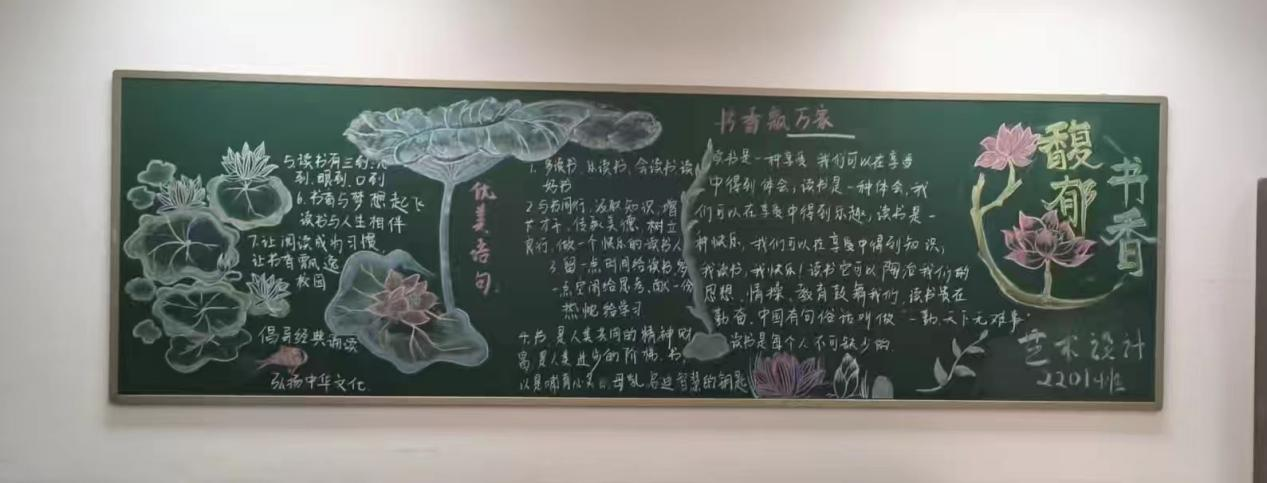 馥郁书香
艺术设计
2201班
书香飘万家
读书是一种享受 我们可以在享受
中得到体会,读书是一种体会,我
们可以在享受中得到乐趣,读书是一
种快乐,我们可以在享受中得到知识,
我读书,我快乐!读书它可以陶冶我们的
思想、情操、教育鼓舞我们,读书贵在
勤奋,中国有句俗话叫做“一勤天下无难事”
读书是每个人不可缺少的.
优美语句
1.多读书、乐读书、会读书读
好书
2.与书同行,汲取知识,增
才干,传承美德,树立
良行,做一个快乐的读书人
3.留一点时间给读书,
一点空间给思考,献一份
热忱给学习
4.书是人类共同的精神财
富,是人类进步的阶梯,书
以是哺育心灵的母乳,启迪智慧的钥匙
与读书有三到:心
到、眼到、口到
6.书香与梦想起飞
读书与人生相伴
7.让阅读成为习惯
让书香飘逸
校园
倡导经典诵读
弘扬中华文化